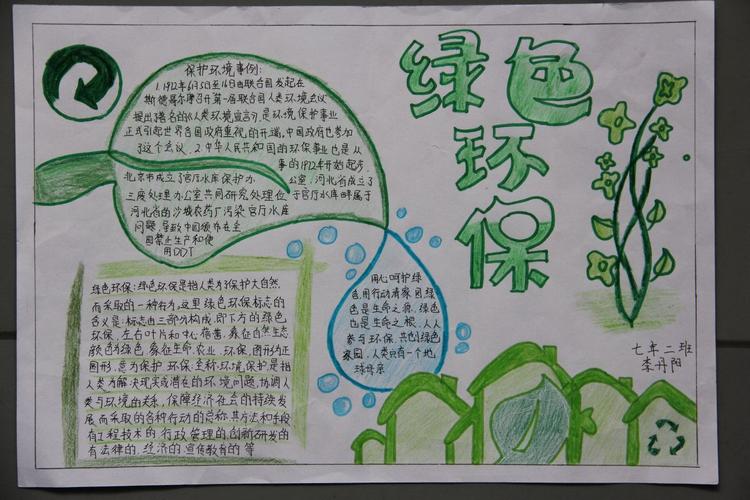 绿色
环
保
保护环境事例:
1.1972年6月5日至16日由联合国发起在
斯德哥尔摩召开第一届联合国人类环境会议
提出了著名的《人类环境宣言》,是环境保护事业
正式引起世界各国政府重视的开端,中国政府也参加
了这个会议.2.中华人民共和国的环保事业也是从
事的1972年开始起步.
北京市成立了官厅水库保护办公室,河北省成立了
三废处理办公室共同研究处理位于官厅水库畔属于
河北省的沙城农药厂污染官厅水库
问题,导致中国颁布在全
国禁止生产和使
用DDT
绿色环保:绿色环保是指人类为了保护大自然
而采取的一种行为,这里绿色环保标志的
含义是:标志由三部分构成,即下方的绿色
环保,左右叶片和中心蓓蕾,象征自然生态
颜色为绿色,象征生命,农业,环保,图形为正
圆形,意为保护.环保:全称环境保护,是指
人类为解决现实或潜在的环境问题,协调人
类与环境的关系,保障经济社会的持续发
展而采取的各种行动的总称.其方法和手段
有工程技术的,行政管理的,创新研发的
有法律的,经济的,宣传教育的等
用心呵护绿
色,用行动清家园绿
色是生命之源,绿色
也是生命之根,人人
参与环保,共建绿色
家园,人类只有一个地
球母亲
七年二班
李丹阳